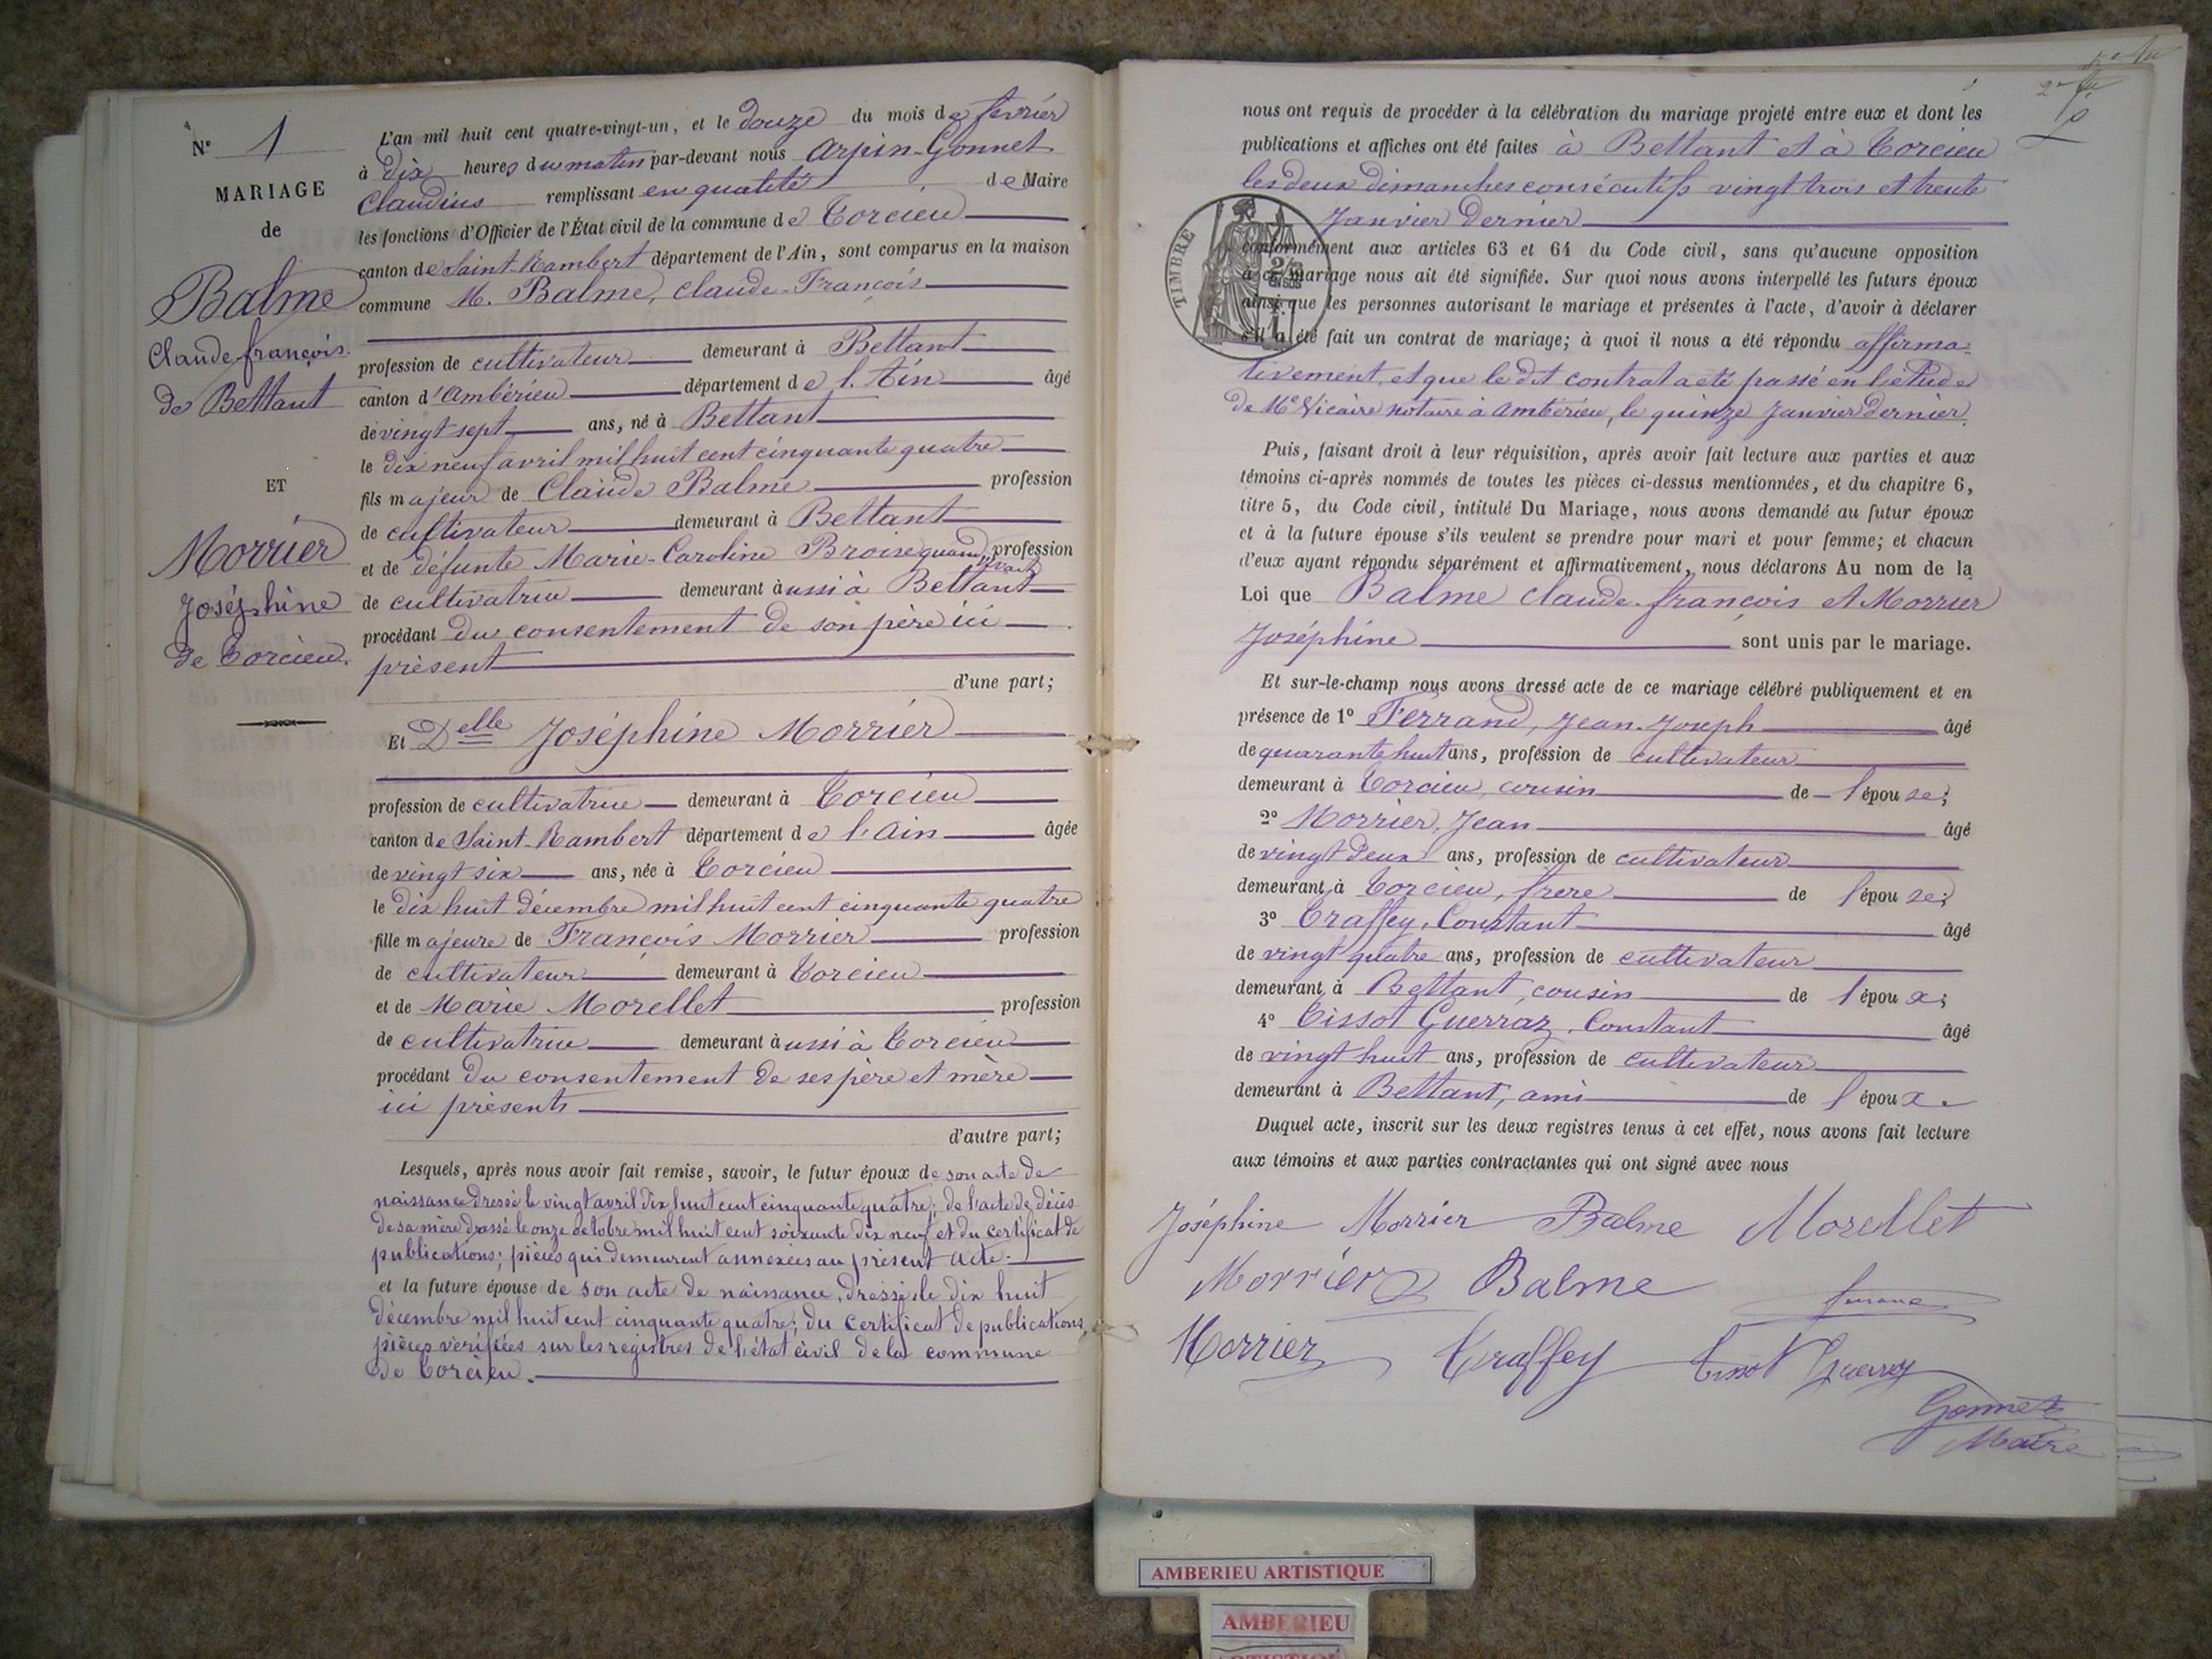 N° 1
MARIAGE
de
Balme
Claude françois
de Bettant
ET
Morrier
Joséphine
de Torcieu.
L'an mil huit cent quatre-vingt-un, et le douze du mois de février
à dix heures du matin par-devant nous Arpin-Gonnet
Claudius remplissant en qualité de Maire
les fonctions d'Officier de l'État civil de la commune de Torcieu
canton de Saint-Rambert département de l'Ain, sont comparus en la maison
commune M. Balme, Claude-François
profession de cultivateur demeurant à Bettant
canton d'Ambérieu département de l'Ain âgé
de vingt sept ans, né à Bettant
le dix neuf avril mil huit cent cinquante quatre
fils majeur de Claude Balme profession
de cultivateur demeurant à Bettant
et de défunte Marie-Caroline Broise quand vivait profession
de cultivatrice demeurant aussi à Bettant
procédant du consentement de son père ici
présent
d'une part;
Et Delle Joséphine Morrier
profession de cultivatrice demeurant à Torcieu
canton de Saint-Rambert département de l'Ain âgée
de vingt six ans, née à Torcieu
le dix huit décembre mil huit cent cinquante quatre
fille majeure de François Morrier profession
de cultivateur demeurant à Torcieu
et de Marie Morellet profession
de cultivatrice demeurant aussi à Torcieu
procédant du consentement de ses père et mère
ici présents
d'autre part;
Lesquels, après nous avoir fait remise, savoir, le futur époux de son acte de
naissance dressé le vingt avril dix huit cent cinquante quatre; de l'acte de décès
de sa mère dressé le onze octobre mil huit cent soixante dix neuf et du certificat de
publications; pièces qui demeurent annexées au présent acte.
et la future épouse de son acte de naissance, dressé le dix huit
décembre mil huit cent cinquante quatre; du certificat de publications,
pièces vérifiées sur les registres de l'état civil de la commune
de Torcieu.
nous ont requis de procéder à la célébration du mariage projeté entre eux et dont les
publications et affiches ont été faites à Bettant et à Torcieu
les deux dimanches consécutifs vingt trois et trente
Janvier dernier
TIMBRE
conformément aux articles 63 et 64 du Code civil, sans qu'aucune opposition
à ce mariage nous ait été signifiée. Sur quoi nous avons interpellé les futurs époux
ainsi que les personnes autorisant le mariage et présentes à l'acte, d'avoir à déclarer
s'il a été fait un contrat de mariage; à quoi il nous a été répondu affirma-
tivement, et que le dit contrat a été passé en l'étude
de Me Vicaire notaire à Ambérieu, le quinze Janvier dernier.
Puis, faisant droit à leur réquisition, après avoir fait lecture aux parties et aux
témoins ci-après nommés de toutes les pièces ci-dessus mentionnées, et du chapitre 6,
titre 5, du Code civil, intitulé Du Mariage, nous avons demandé au futur époux
et à la future épouse s'ils veulent se prendre pour mari et pour femme; et chacun
d'eux ayant répondu séparément et affirmativement, nous déclarons Au nom de la
Loi que Balme Claude-françois et Morrier
Joséphine sont unis par le mariage.
Et sur-le-champ nous avons dressé acte de ce mariage célébré publiquement et en
présence de 1° Ferrand, Jean-Joseph âgé
de quarante huit ans, profession de cultivateur
demeurant à Torcieu, cousin de l'épouse;
2° Morrier, Jean âgé
de vingt deux ans, profession de cultivateur
demeurant à Torcieu, frere de l'épouse;
3° Traffey, Constant âgé
de vingt quatre ans, profession de cultivateur
demeurant à Bettant, cousin de l'époux;
4° Tissot Guerraz, Constant âgé
de vingt huit ans, profession de cultivateur
demeurant à Bettant, ami de l'époux.
Duquel acte, inscrit sur les deux registres tenus à cet effet, nous avons fait lecture
aux témoins et aux parties contractantes qui ont signé avec nous
Joséphine Morrier Balme Morellet
Morrier Balme
Morrier Traffey Tissot Guerraz
Gonnet
Maire
AMBERIEU ARTISTIQUE
AMBERIEU
ARTISTIQUE